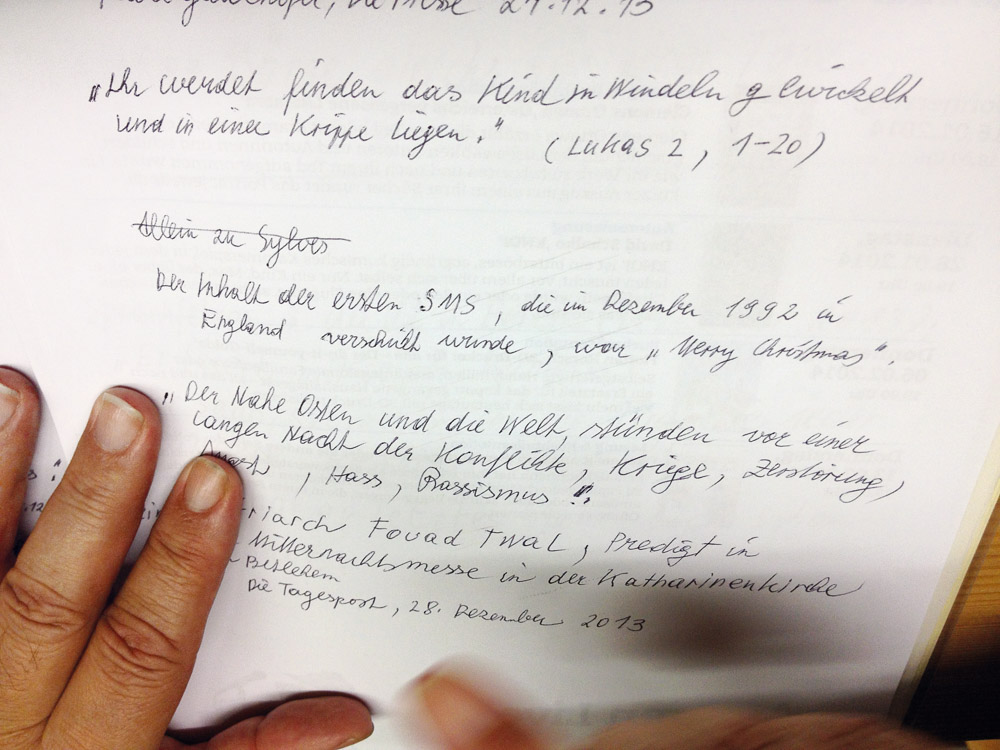 Presse 21.12.13
„Ihr werdet finden das Kind in Windeln gewickelt
und in einer Krippe liegen."
(Lukas 2, 1-20)
Allein zu Sylves
Der Inhalt der ersten SMS, die im Dezember 1992 in
England verschickt wurde, war „Merry Christmas".
„Der Nahe Osten und die Welt, stünden vor einer
langen Nacht der Konflikte, Kriege, Zerstörung,
Angst, Hass, Rassismus".
riarch Fouad Twal, Predigt in
Mitternachtsmesse in der Katharinenkirche
Bethlehem
Die Tagespost, 28. Dezember 2013